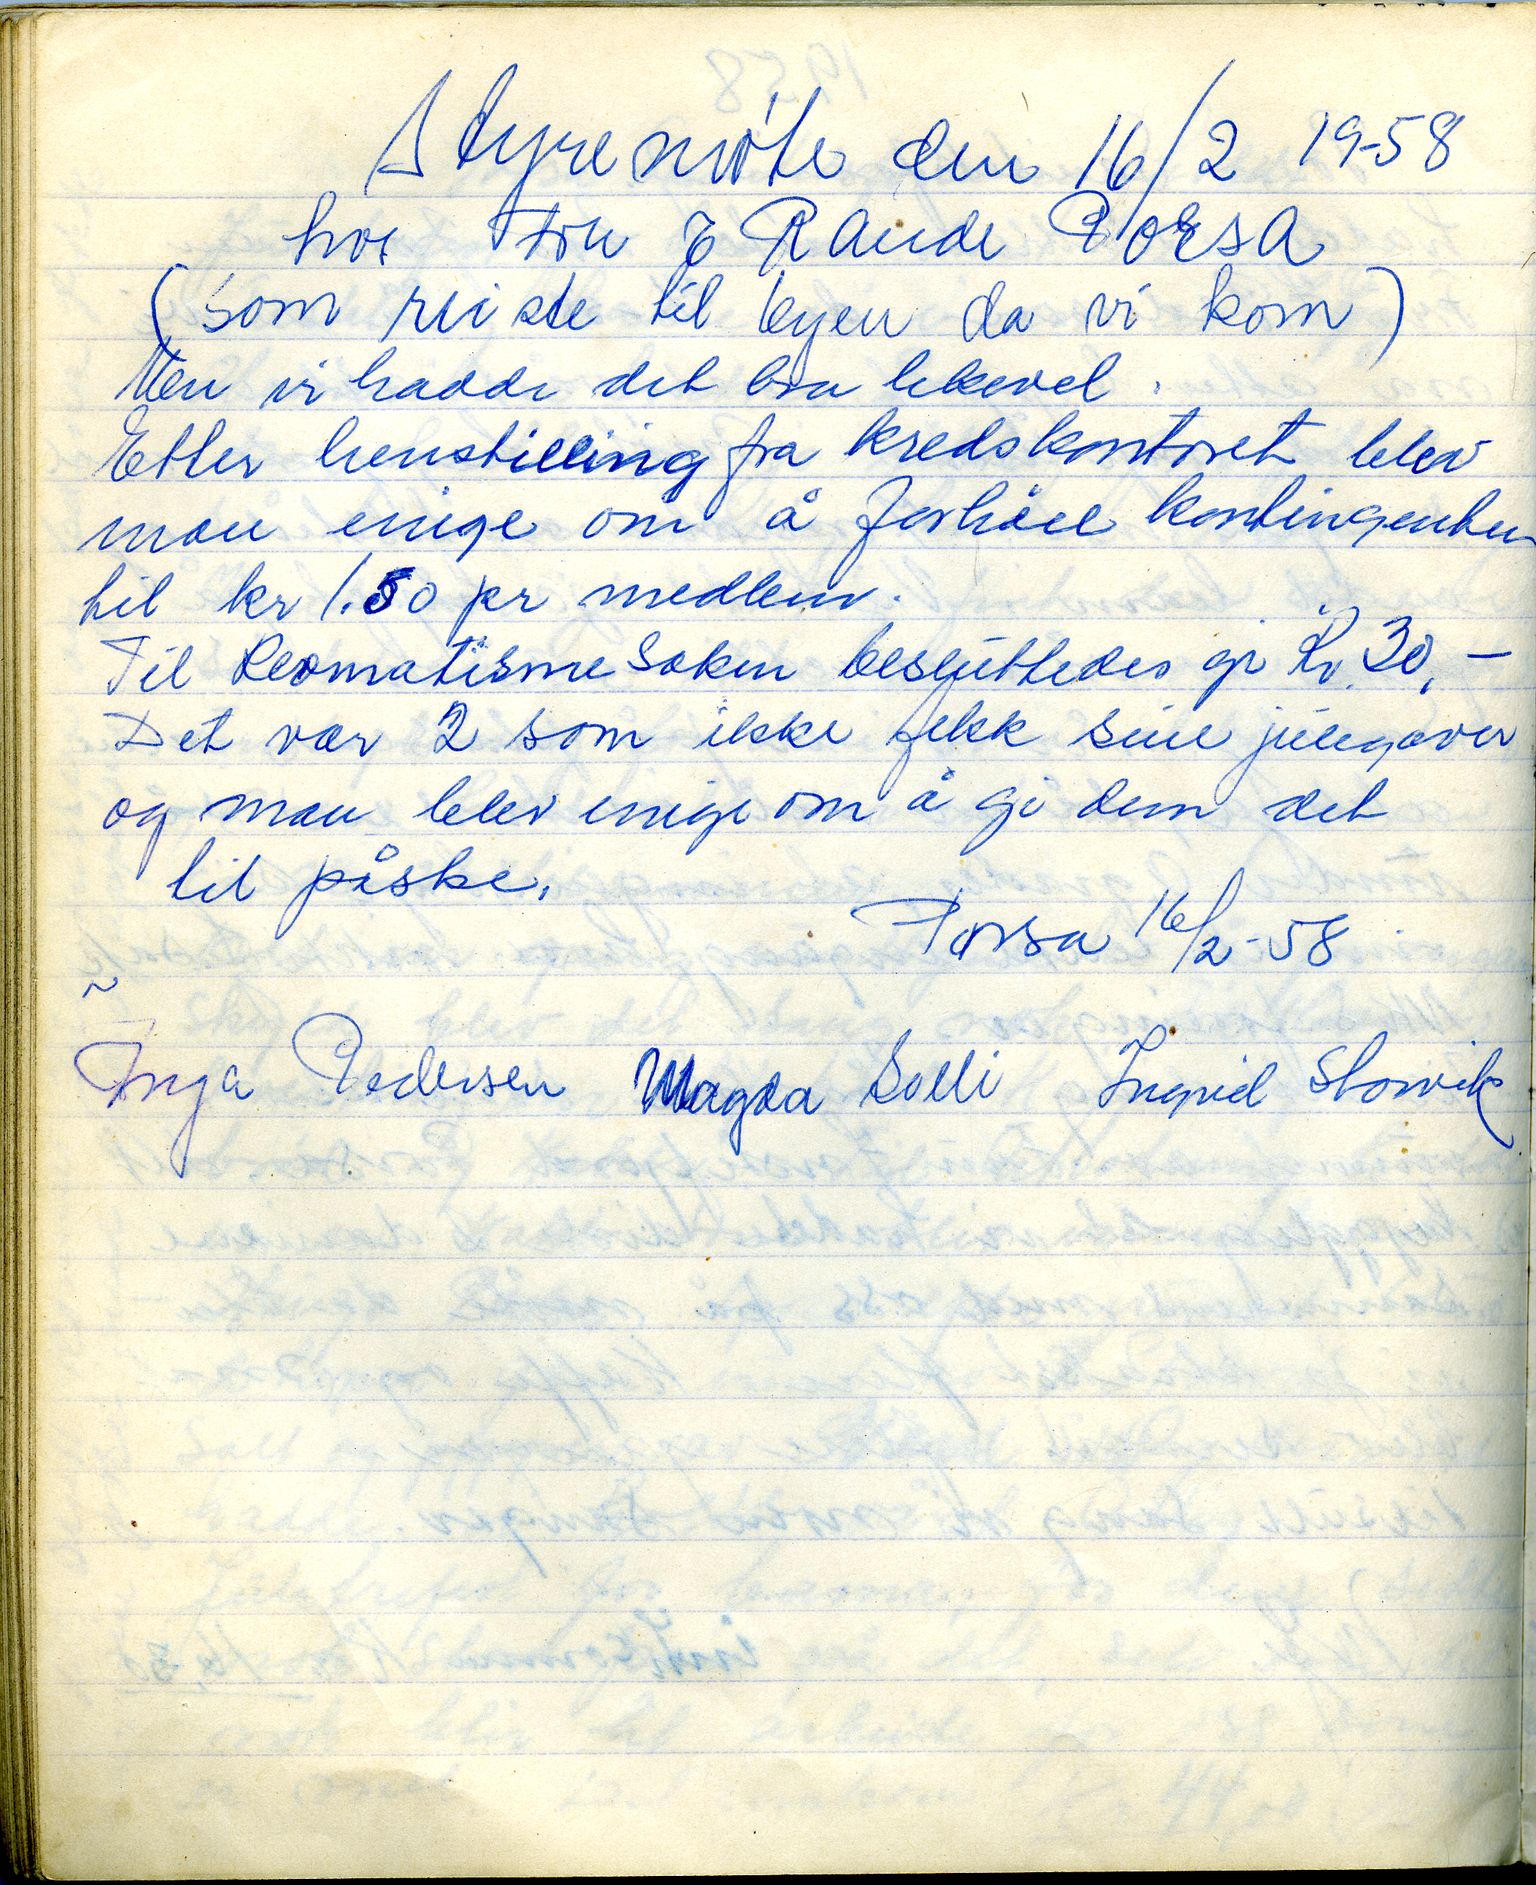 Styremöte den 16/2 19-58
hos fru E Rande Porsa
(som reiste til byen da vi kom)
Men vi hadde det bra likevel.
Etter henstilling fra kredskontoret blev
man enige om å forhöie kontingenten
til kr 1.50 pr medlem.
Til Reomatisme Saken besluttedes gi kr. 30,-
Det var 2 som ikke fikk sine julegaver
og man blev enige om å gi dem det
til påske.
Porsa 16/2-58
Inga Pedersen Magda Solli Ingrid Storvik